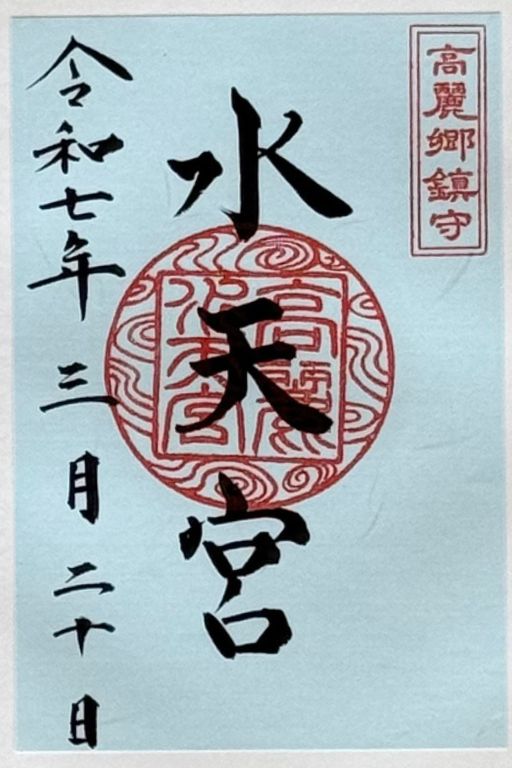 高麗郷鎮守
水天宮
高麗
水天宮
令和七年三月二十日